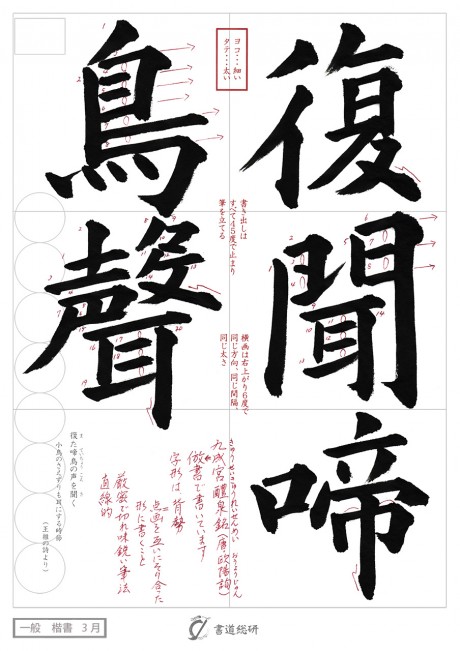 復聞啼
鳥聲
ヨコ・・・細い
タテ・・・太い
書き出しは
すべて45度で止まり
筆を立てる
横画は右上がり6度で
同じ方向、同じ間隔、
同じ太さ
九成宮醴泉銘(唐 欧陽詢)
きゅうせいきゅうれいせんめい
おうようじゅん
倣書で書いています
字形は背勢
点画を互いにそり合った
形に書くこと
厳密で切れ味鋭い筆法
直線的
復た啼鳥の声を聞く
小鳥のさえずりも耳にする時節
(王維の詩より)
一般 楷書 3月
書道総研